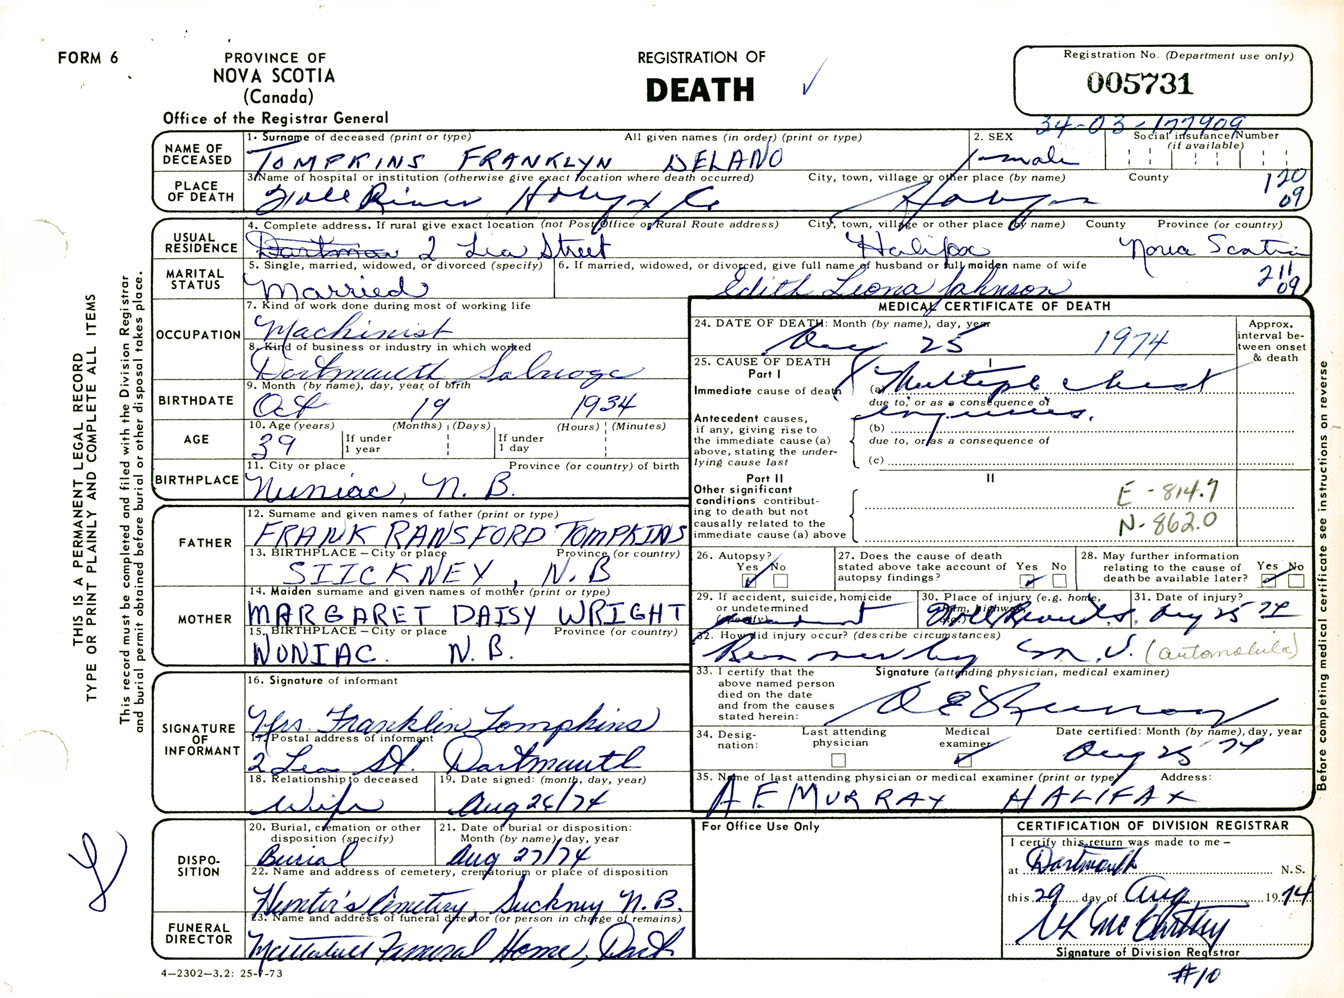 FORM 6
PROVINCE OF
NOVA SCOTIA
(Canada)
Office of the Registrar General
REGISTRATION OF
DEATH
Registration No. (Department use only)
005731
34-03-177909
THIS IS A PERMANENT LEGAL RECORD
TYPE OR PRINT PLAINLY AND COMPLETE ALL ITEMS
This record must be completed and filed with the Division Registrar
and burial permit obtained before burial or other disposal takes place.
NAME OF DECEASED
1. Surname of deceased (print or type) All given names (in order) (print or type)
TOMPKINS FRANKLYN DELANO
2. SEX
male
Social insurance Number
(if available)
PLACE OF DEATH
3. Name of hospital or institution (otherwise give exact location where death occurred) City, town, village or other place (by name) County
Fall River Hfx Co
120
09
USUAL RESIDENCE
4. Complete address. If rural give exact location (not Post Office or Rural Route address) City, town, village or other place (by name) County Province (or country)
2 Lea Street Halifax Nova Scotia
MARITAL STATUS
5. Single, married, widowed, or divorced (specify)
Married
6. If married, widowed, or divorced, give full name of husband or full maiden name of wife
Edith Leona Johnson
211
09
OCCUPATION
7. Kind of work done during most of working life
Machinist
8. Kind of business or industry in which worked
Dartmouth Salvage
BIRTHDATE
9. Month (by name), day, year of birth
Oct 19 1934
AGE
10. Age (years) (Months) (Days) (Hours) (Minutes)
39 If under 1 year If under 1 day
BIRTHPLACE
11. City or place Province (or country) of birth
Nuniac, N. B.
FATHER
12. Surname and given names of father (print or type)
FRANK RANSFORD TOMPKINS
13. BIRTHPLACE – City or place Province (or country)
SIICKNEY, N.B
MOTHER
14. Maiden surname and given names of mother (print or type)
MARGARET DAISY WRIGHT
15. BIRTHPLACE – City or place Province (or country)
NONIAC. N.B.
SIGNATURE OF INFORMANT
16. Signature of informant
Mrs. Franklin Tompkins
17. Postal address of informant
2 Lea St. Dartmouth
18. Relationship to deceased
Wife
19. Date signed: (month, day, year)
Aug 26/74
DISPO-SITION
20. Burial, cremation or other disposition (specify)
Burial
21. Date of burial or disposition: Month (by name), day, year
Aug 27/74
22. Name and address of cemetery, crematorium or place of disposition
Hunter's Cemetery, Suckney N.B.
FUNERAL DIRECTOR
23. Name and address of funeral director (or person in charge of remains)
Funeral Home, Dart
4–2302–3.2: 25-7-73
MEDICAL CERTIFICATE OF DEATH
24. DATE OF DEATH: Month (by name), day, year
Aug 25 1974
Approx. interval between onset & death
25. CAUSE OF DEATH
Part I
Immediate cause of death
I
(a) Multiple chest
due to, or as a consequence of
injuries.
Antecedent causes, if any, giving rise to the immediate cause (a) above, stating the underlying cause last
(b)
due to, or as a consequence of
(c)
Part II
Other significant conditions contributing to death but not causally related to the immediate cause (a) above
II
E - 814.7
N - 862.0
26. Autopsy?
Yes No
27. Does the cause of death stated above take account of autopsy findings?
Yes No
28. May further information relating to the cause of death be available later?
Yes No
29. If accident, suicide, homicide or undetermined (specify)
accident
30. Place of injury (e.g. home, farm, highway, etc.)
31. Date of injury?
Aug 25 74
32. How did injury occur? (describe circumstances)
Run over by M.V. (automobile)
33. I certify that the above named person died on the date and from the causes stated herein:
Signature (attending physician, medical examiner)
34. Designation:
Last attending physician
Medical examiner
Date certified: Month (by name), day, year
Aug 25 74
35. Name of last attending physician or medical examiner (print or type) Address:
A F. MURRAY HALIFAX
Before completing medical certificate see instructions on reverse
For Office Use Only
CERTIFICATION OF DIVISION REGISTRAR
I certify this return was made to me –
at Dartmouth N.S.
this 29 day of Aug 1974
Signature of Division Registrar
#10